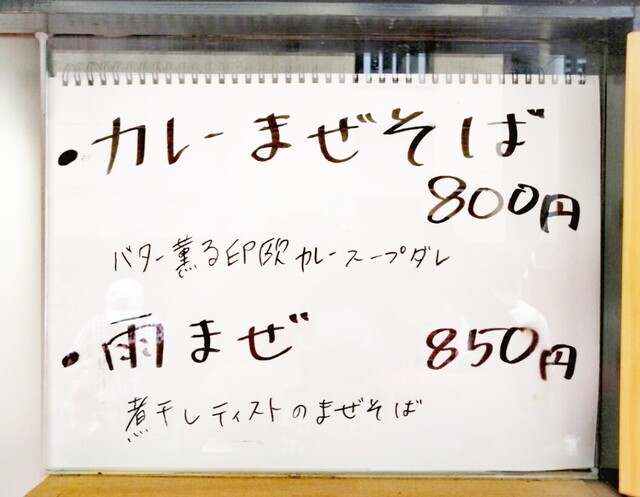 ・カレーまぜそば
800円
バター薫る印欧カレースープダレ
・雨まぜ 850円
煮干しティストのまぜそば